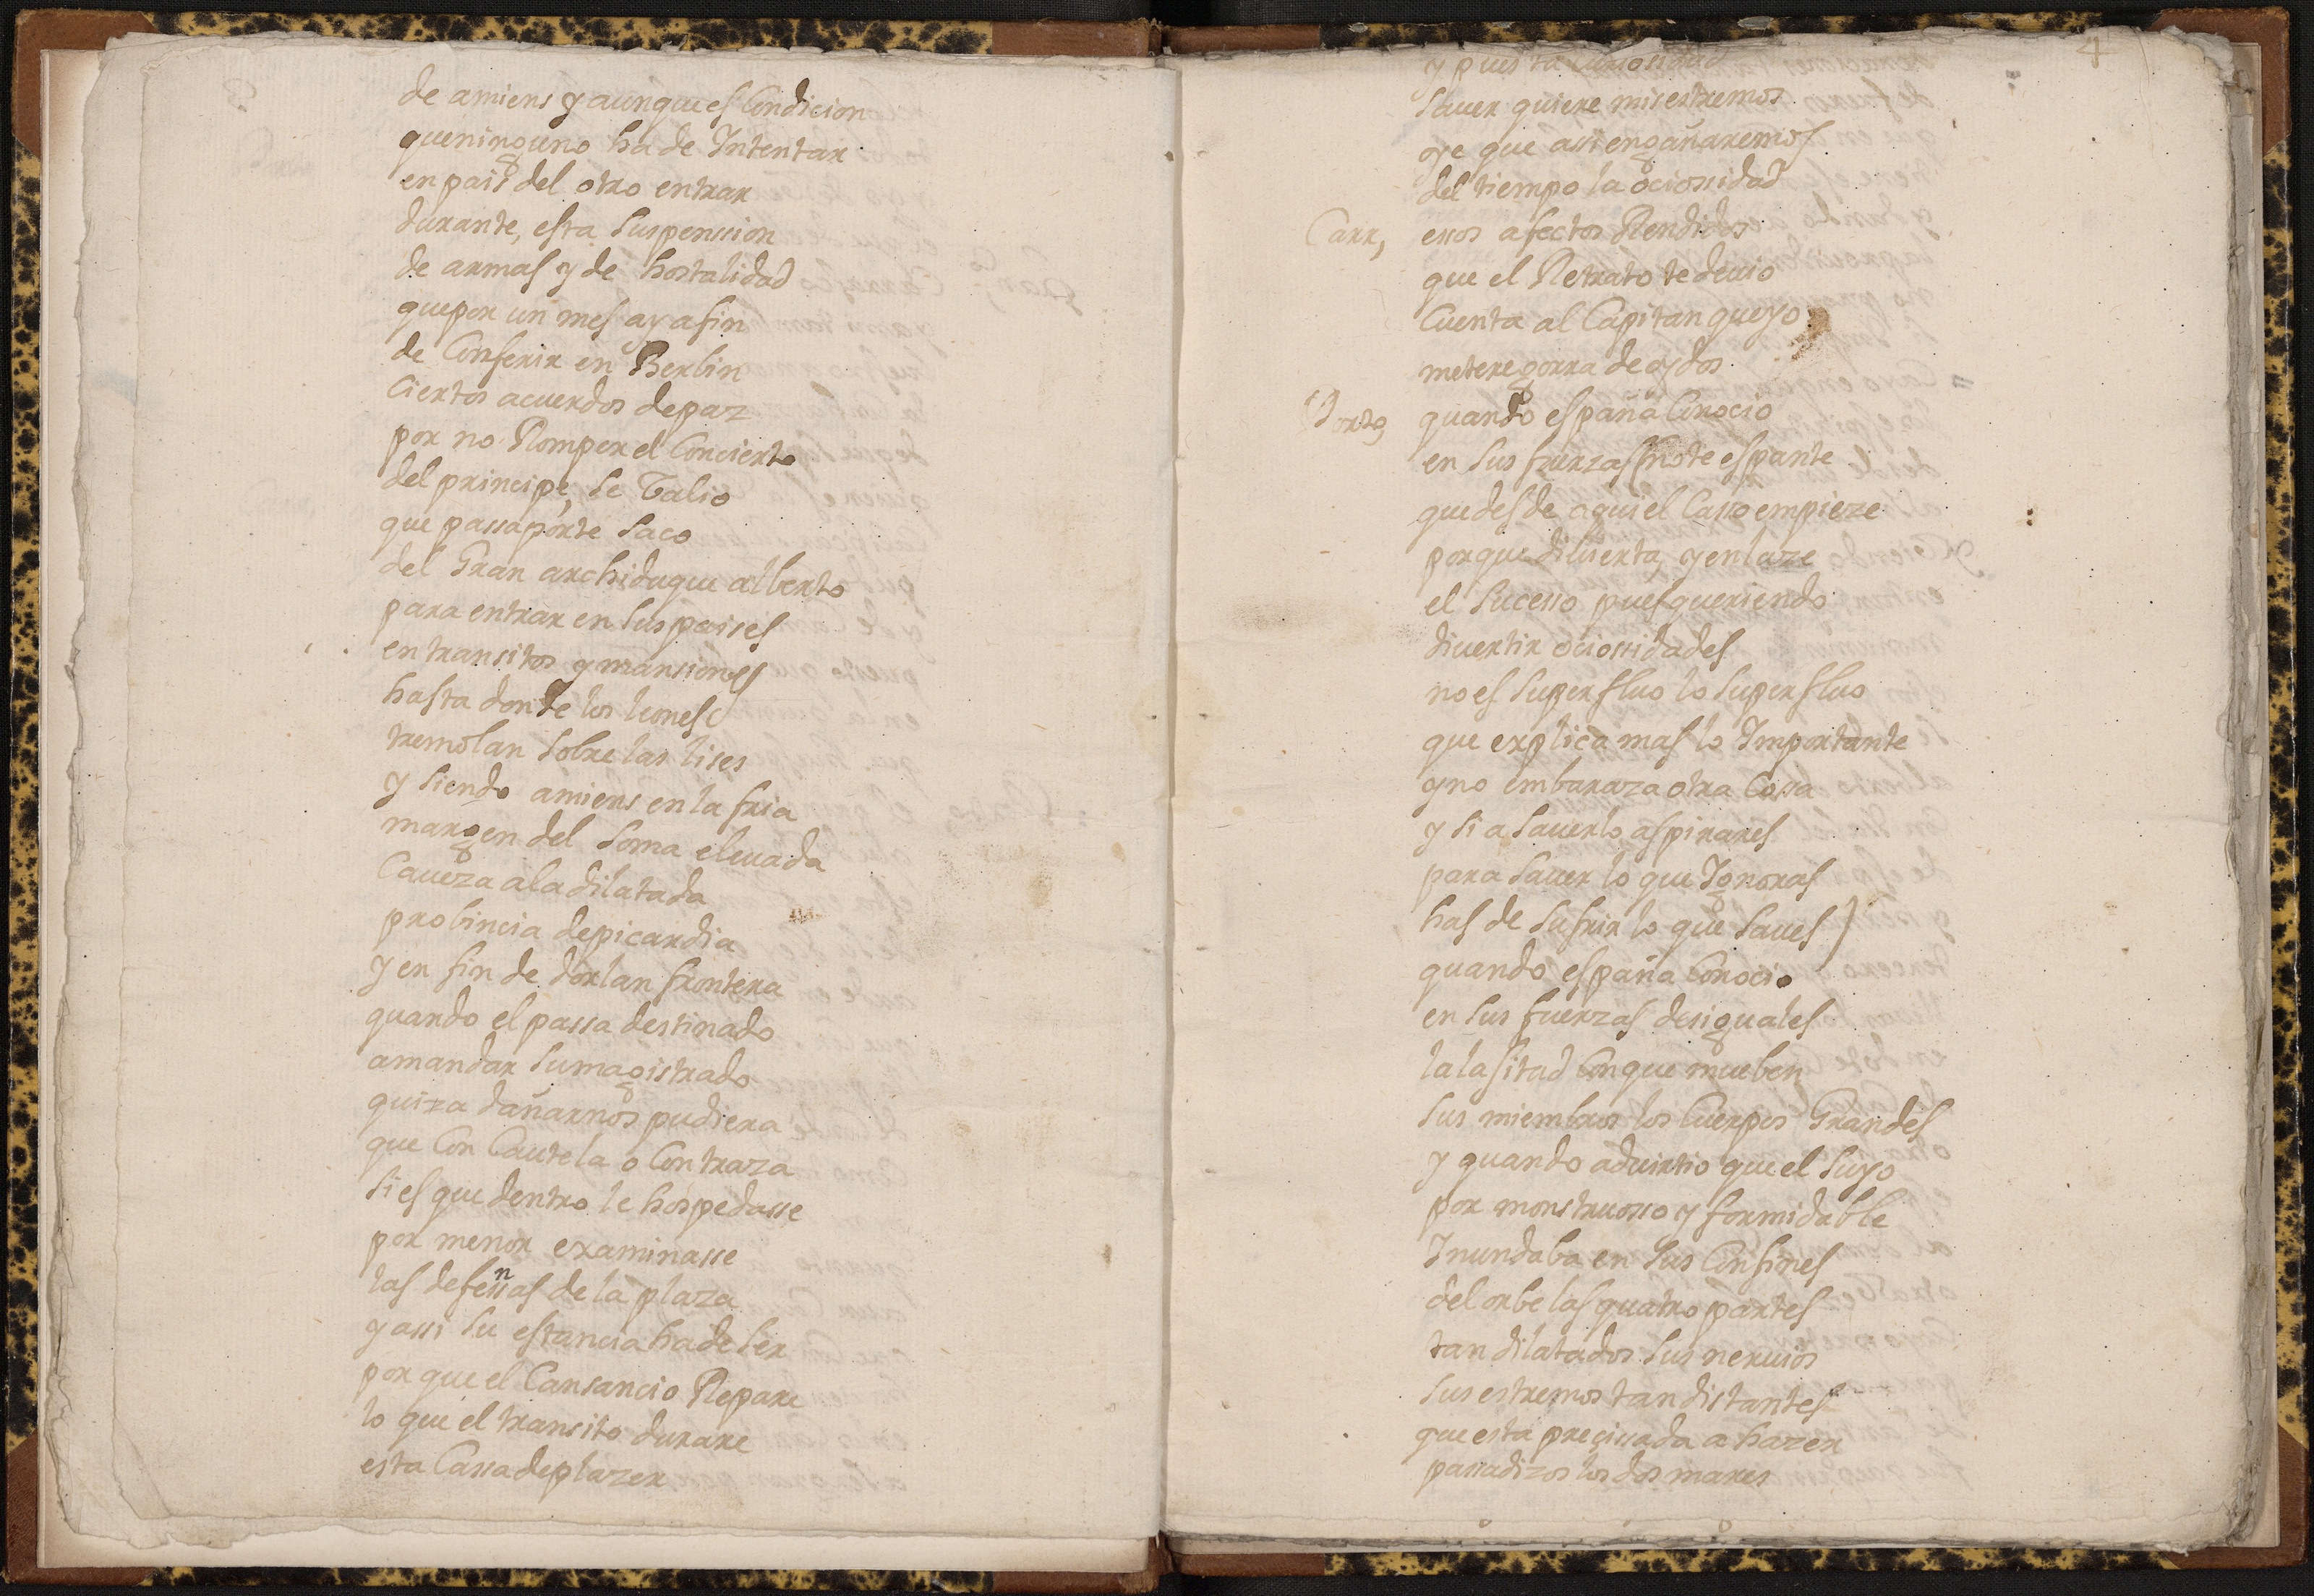 de amiens y aunque es Condicion
que ninguno ha de Intentar
en pais del otro entrar
durante, esta suspenssion
de armas y de hostalidad
que por un mes ay a fin
de Conferir en Berbin
ciertos acuerdos de paz
por no Romper el Concierto
del principe, se balio
que passaporte saco
del Gran archiduque alberto
para entrar en sus paisses
en transitos y mansiones
hasta donde los leones
tremolan sobre las lises
y siendo amiens en la fria
margen del soma eleuada
Caueza a la dilatada
probincia de picardia
y en fin de dorlan frontera
quando el passa destinado
a mandar su magistrado
quiza dañarnos pudiera
que Con Cautela o Con traza
si es que dentro le hospedasse
por menor examinasse
las defensas de la plaza
y assi su estancia ha de ser
por que el Cansancio Repare
lo que el transito durare
esta Cassa de plazer
4
y pues tu curiosidad
sauer quiere mis estremos
oye que assi engañaremos
del tiempo la ociossidad
Carr, essos afectos Rendidos
que el Retrato te deuio
Cuenta al Capitan que yo
metere gorra de oydos
Porto, quando españa Conocio
en sus fuerzas (no te espante
que desde aqui el Casso empieze
porque diuierta, y enlaze
el sucesso pues queriendo
diuertir ociossidades
no es superfluo lo superfluo
que explica mas lo Importante
y no embaraza otra Cossa
y si a sauerlo aspirares
para sauer lo que Ignoras
has de sufrir lo que saues)
quando españa Conocio
en sus fuerzas desiguales
la lasitad Con que mueben
sus miembros los Cuerpos Grandes
y quando aduirtio que el suyo
por monstruosso y formidable
Inundaba en sus Confines
del orbe las quatro partes
tan dilatados sus neruios
sus estremos tan distantes
que esta precissada a hazer
passadizos los dos mares